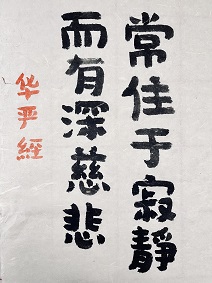 常住于寂靜
而有深慈悲
华严經